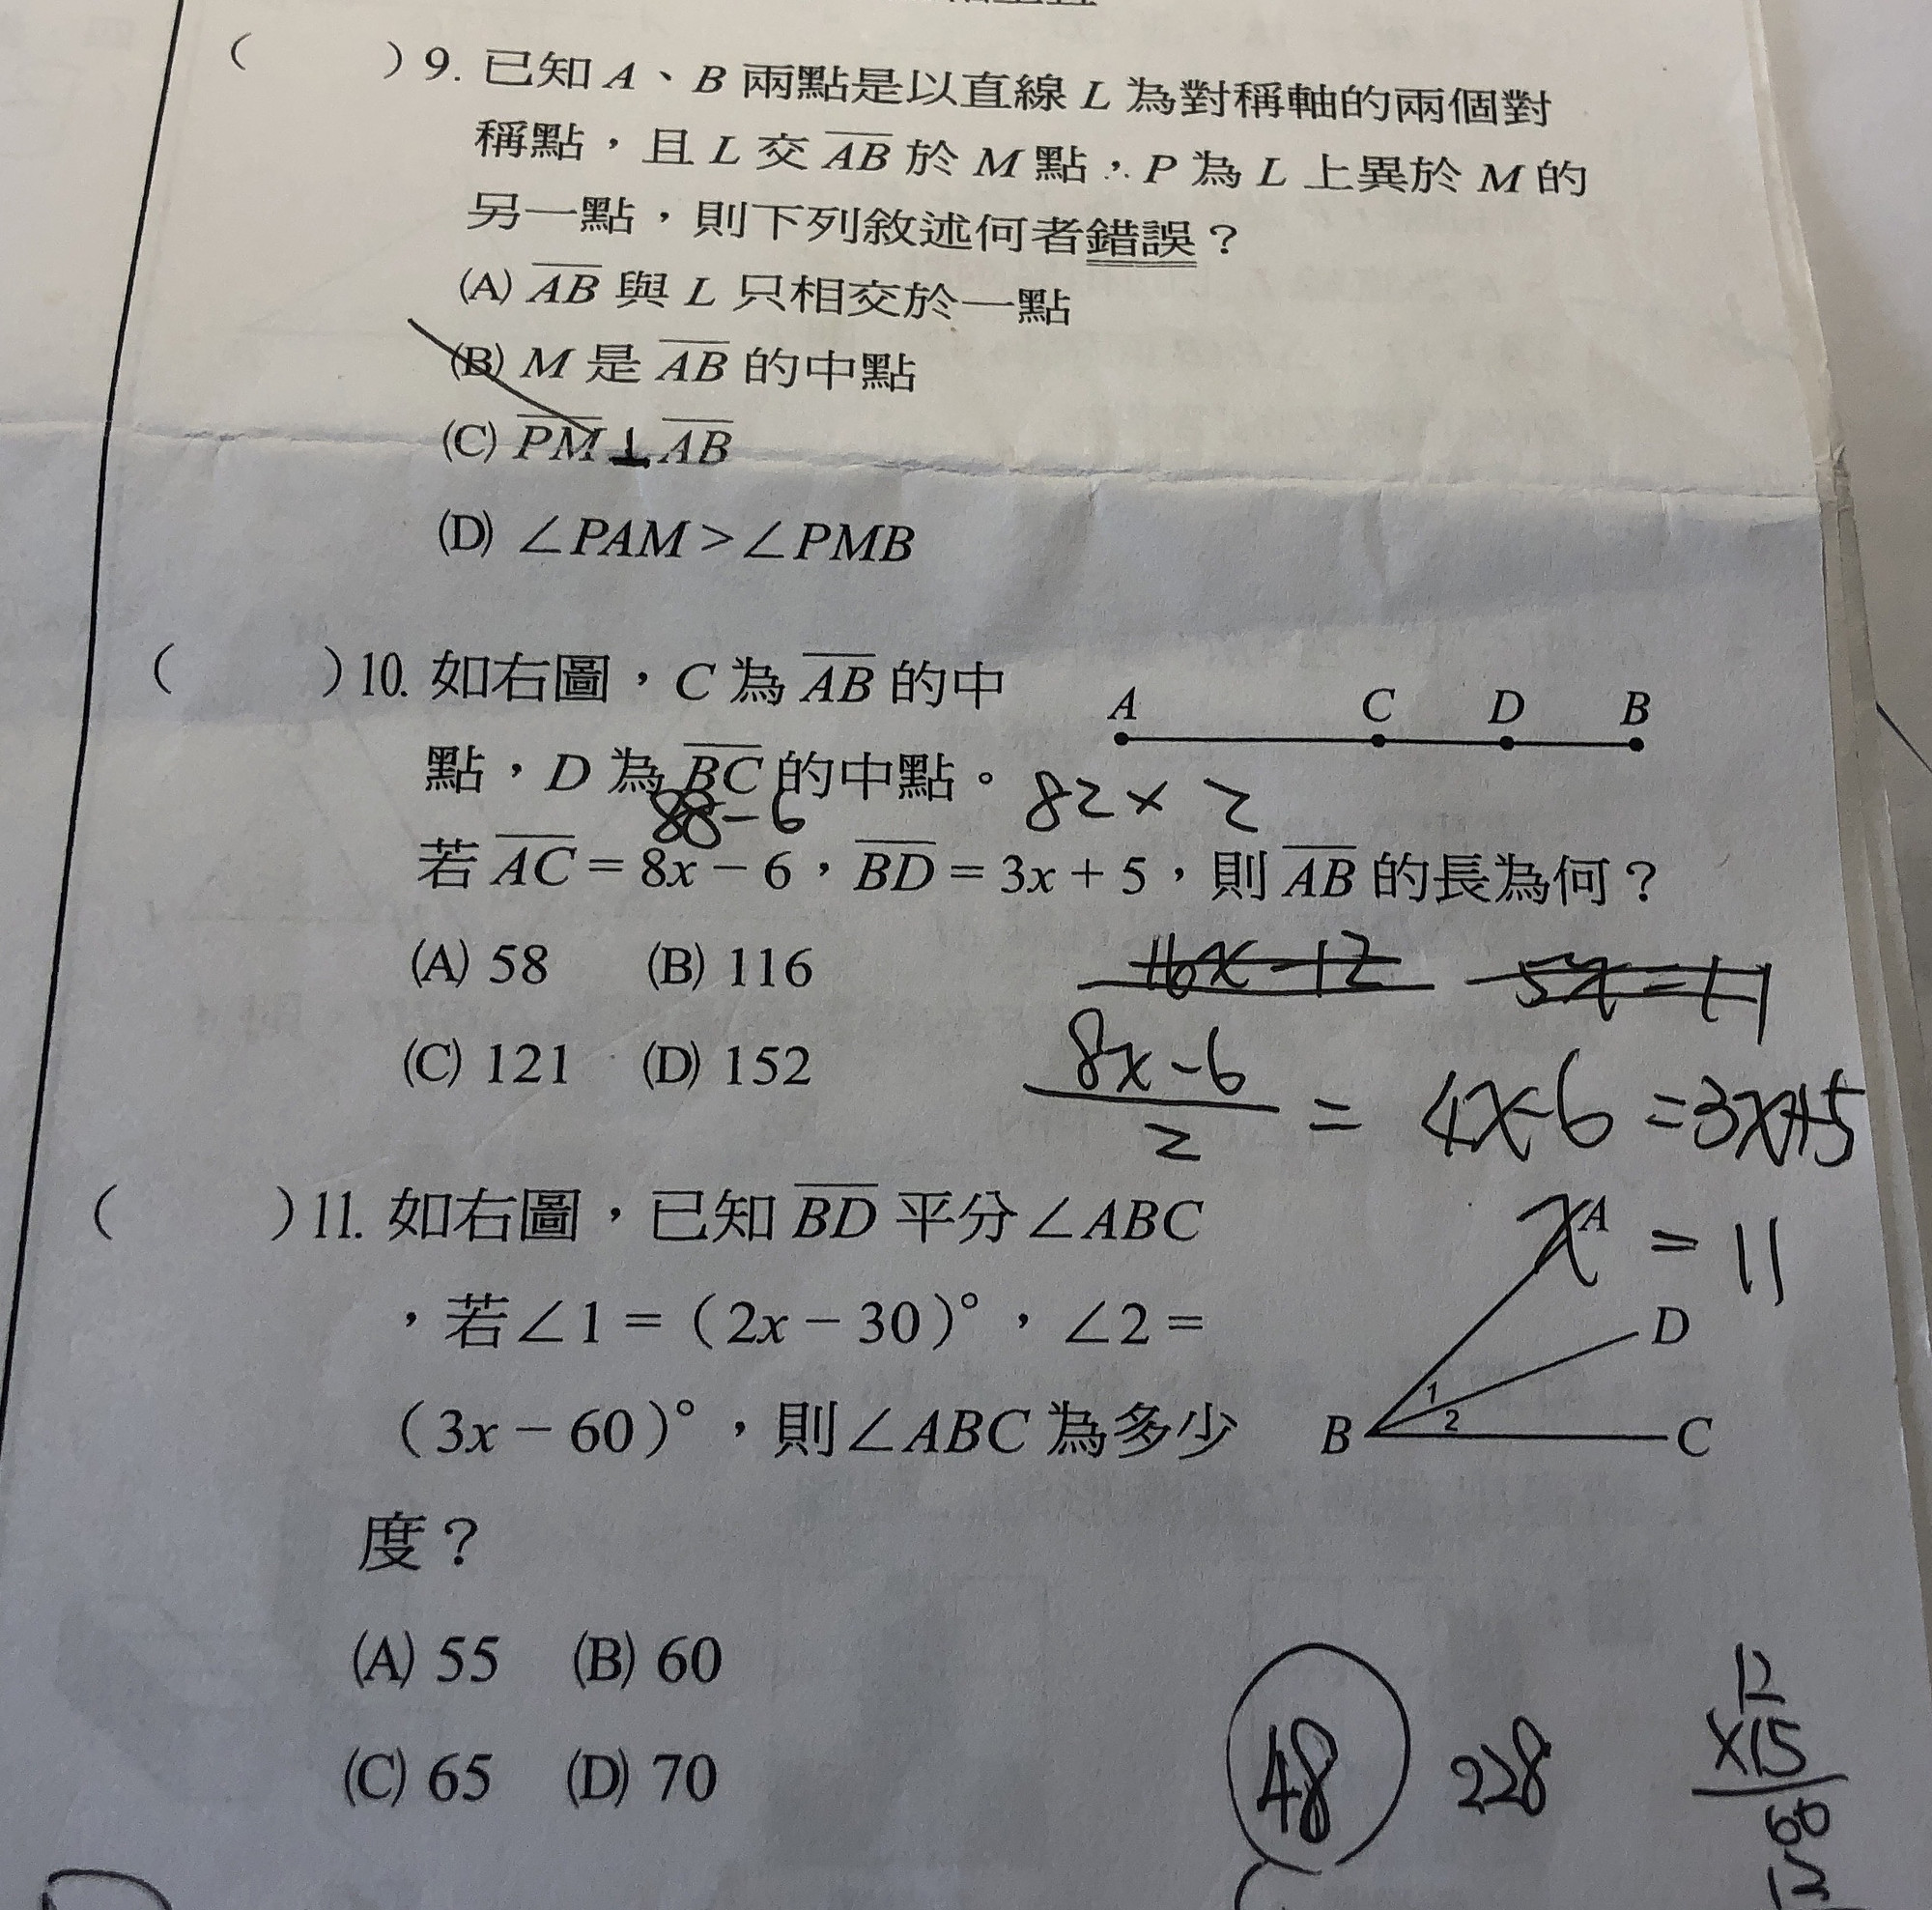 (　　)9. 已知 A、B 兩點是以直線 L 為對稱軸的兩個對
稱點，且 L 交 AB 於 M 點，P 為 L 上異於 M 的
另一點，則下列敘述何者錯誤？
(A) AB 與 L 只相交於一點
(B) M 是 AB 的中點
(C) PM⊥AB
(D) ∠PAM＞∠PMB
(　　)10. 如右圖，C 為 AB 的中
A C D B
點，D 為 BC 的中點。
88-6
82×2
若 AC = 8x－6，BD = 3x + 5，則 AB 的長為何？
(A) 58 (B) 116
16x-12
(C) 121 (D) 152
8x-6
2
= 4x-6 =3x+5
x = 11
(　　)11. 如右圖，已知 BD 平分∠ABC
，若∠1 =（2x－30）°，∠2 =
（3x－60）°，則∠ABC 為多少
度？
A
D
1
2
B C
(A) 55 (B) 60
(C) 65 (D) 70
48 228
12
×15
60
12